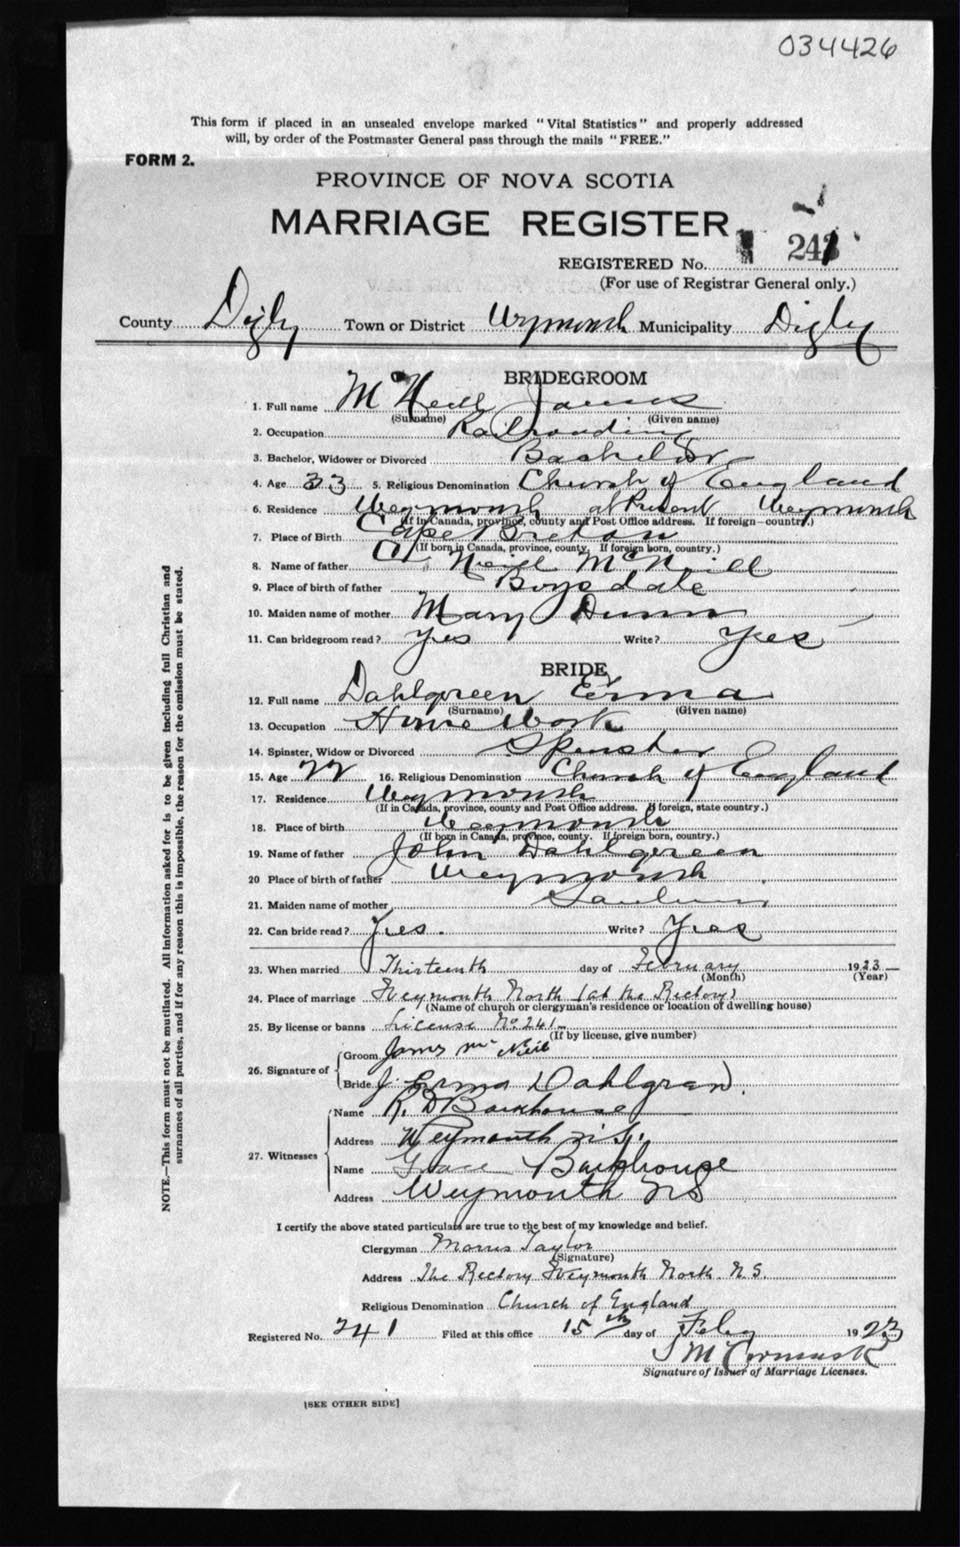 034426
This form if placed in an unsealed envelope marked "Vital Statistics" and properly addressed
will, by order of the Postmaster General pass through the mails "FREE."
FORM 2.
PROVINCE OF NOVA SCOTIA
MARRIAGE REGISTER
REGISTERED No. 241
(For use of Registrar General only.)
County Digby Town or District Weymouth Municipality Digby
BRIDEGROOM
1. Full name McNeill James
(Surname) (Given name)
2. Occupation Railroading
3. Bachelor, Widower or Divorced Bachelor
4. Age 33 5. Religious Denomination Church of England
6. Residence Weymouth at Present Weymouth
(If in Canada, province, county and Post Office address. If foreign—country.)
7. Place of Birth Cape Breton
(If born in Canada, province, county. If foreign born, country.)
8. Name of father Neill McNeill
9. Place of birth of father Boysdale
10. Maiden name of mother Mary Dunn
11. Can bridegroom read? Yes Write? Yes
BRIDE
12. Full name Dahlgreen Erma
(Surname) (Given name)
13. Occupation House Work
14. Spinster, Widow or Divorced Spinster
15. Age 22 16. Religious Denomination Church of England
17. Residence Weymouth
(If in Canada, province, county and Post Office address. If foreign, state country.)
18. Place of birth Weymouth
(If born in Canada, province, county. If foreign born, country.)
19. Name of father John Dahlgreen
20 Place of birth of father Weymouth
21. Maiden name of mother
22. Can bride read? Yes. Write? Yes
23. When married Thirteenth day of February 1923
(Month) (Year)
24. Place of marriage Weymouth North (at the Rectory)
(Name of church or clergyman's residence or location of dwelling house)
25. By license or banns License No. 241
(If by license, give number)
26. Signature of
Groom James McNeil
Bride J. Erma Dahlgren
27. Witnesses
Name R. D Barkhouse
Address Weymouth N.S.
Name Grace Barkhouse
Address Weymouth NS
I certify the above stated particulars are true to the best of my knowledge and belief.
Clergyman Morris Taylor
(Signature)
Address The Rectory Weymouth North N.S.
Religious Denomination Church of England
Registered No. 241 Filed at this office 15th day of Feby 1923
Signature of Issuer of Marriage Licenses.
[SEE OTHER SIDE]
NOTE.—This form must not be mutilated. All information asked for is to be given including full Christian and
surnames of all parties, and if for any reason this is impossible, the reason for the omission must be stated.